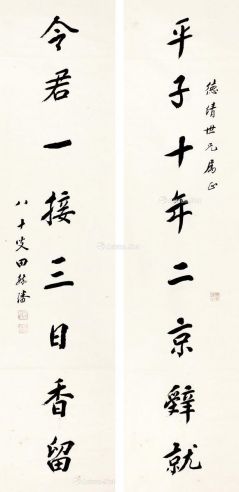 德清世兄属正
平子十年二京辞就
令君一接三日香留
八十叟田